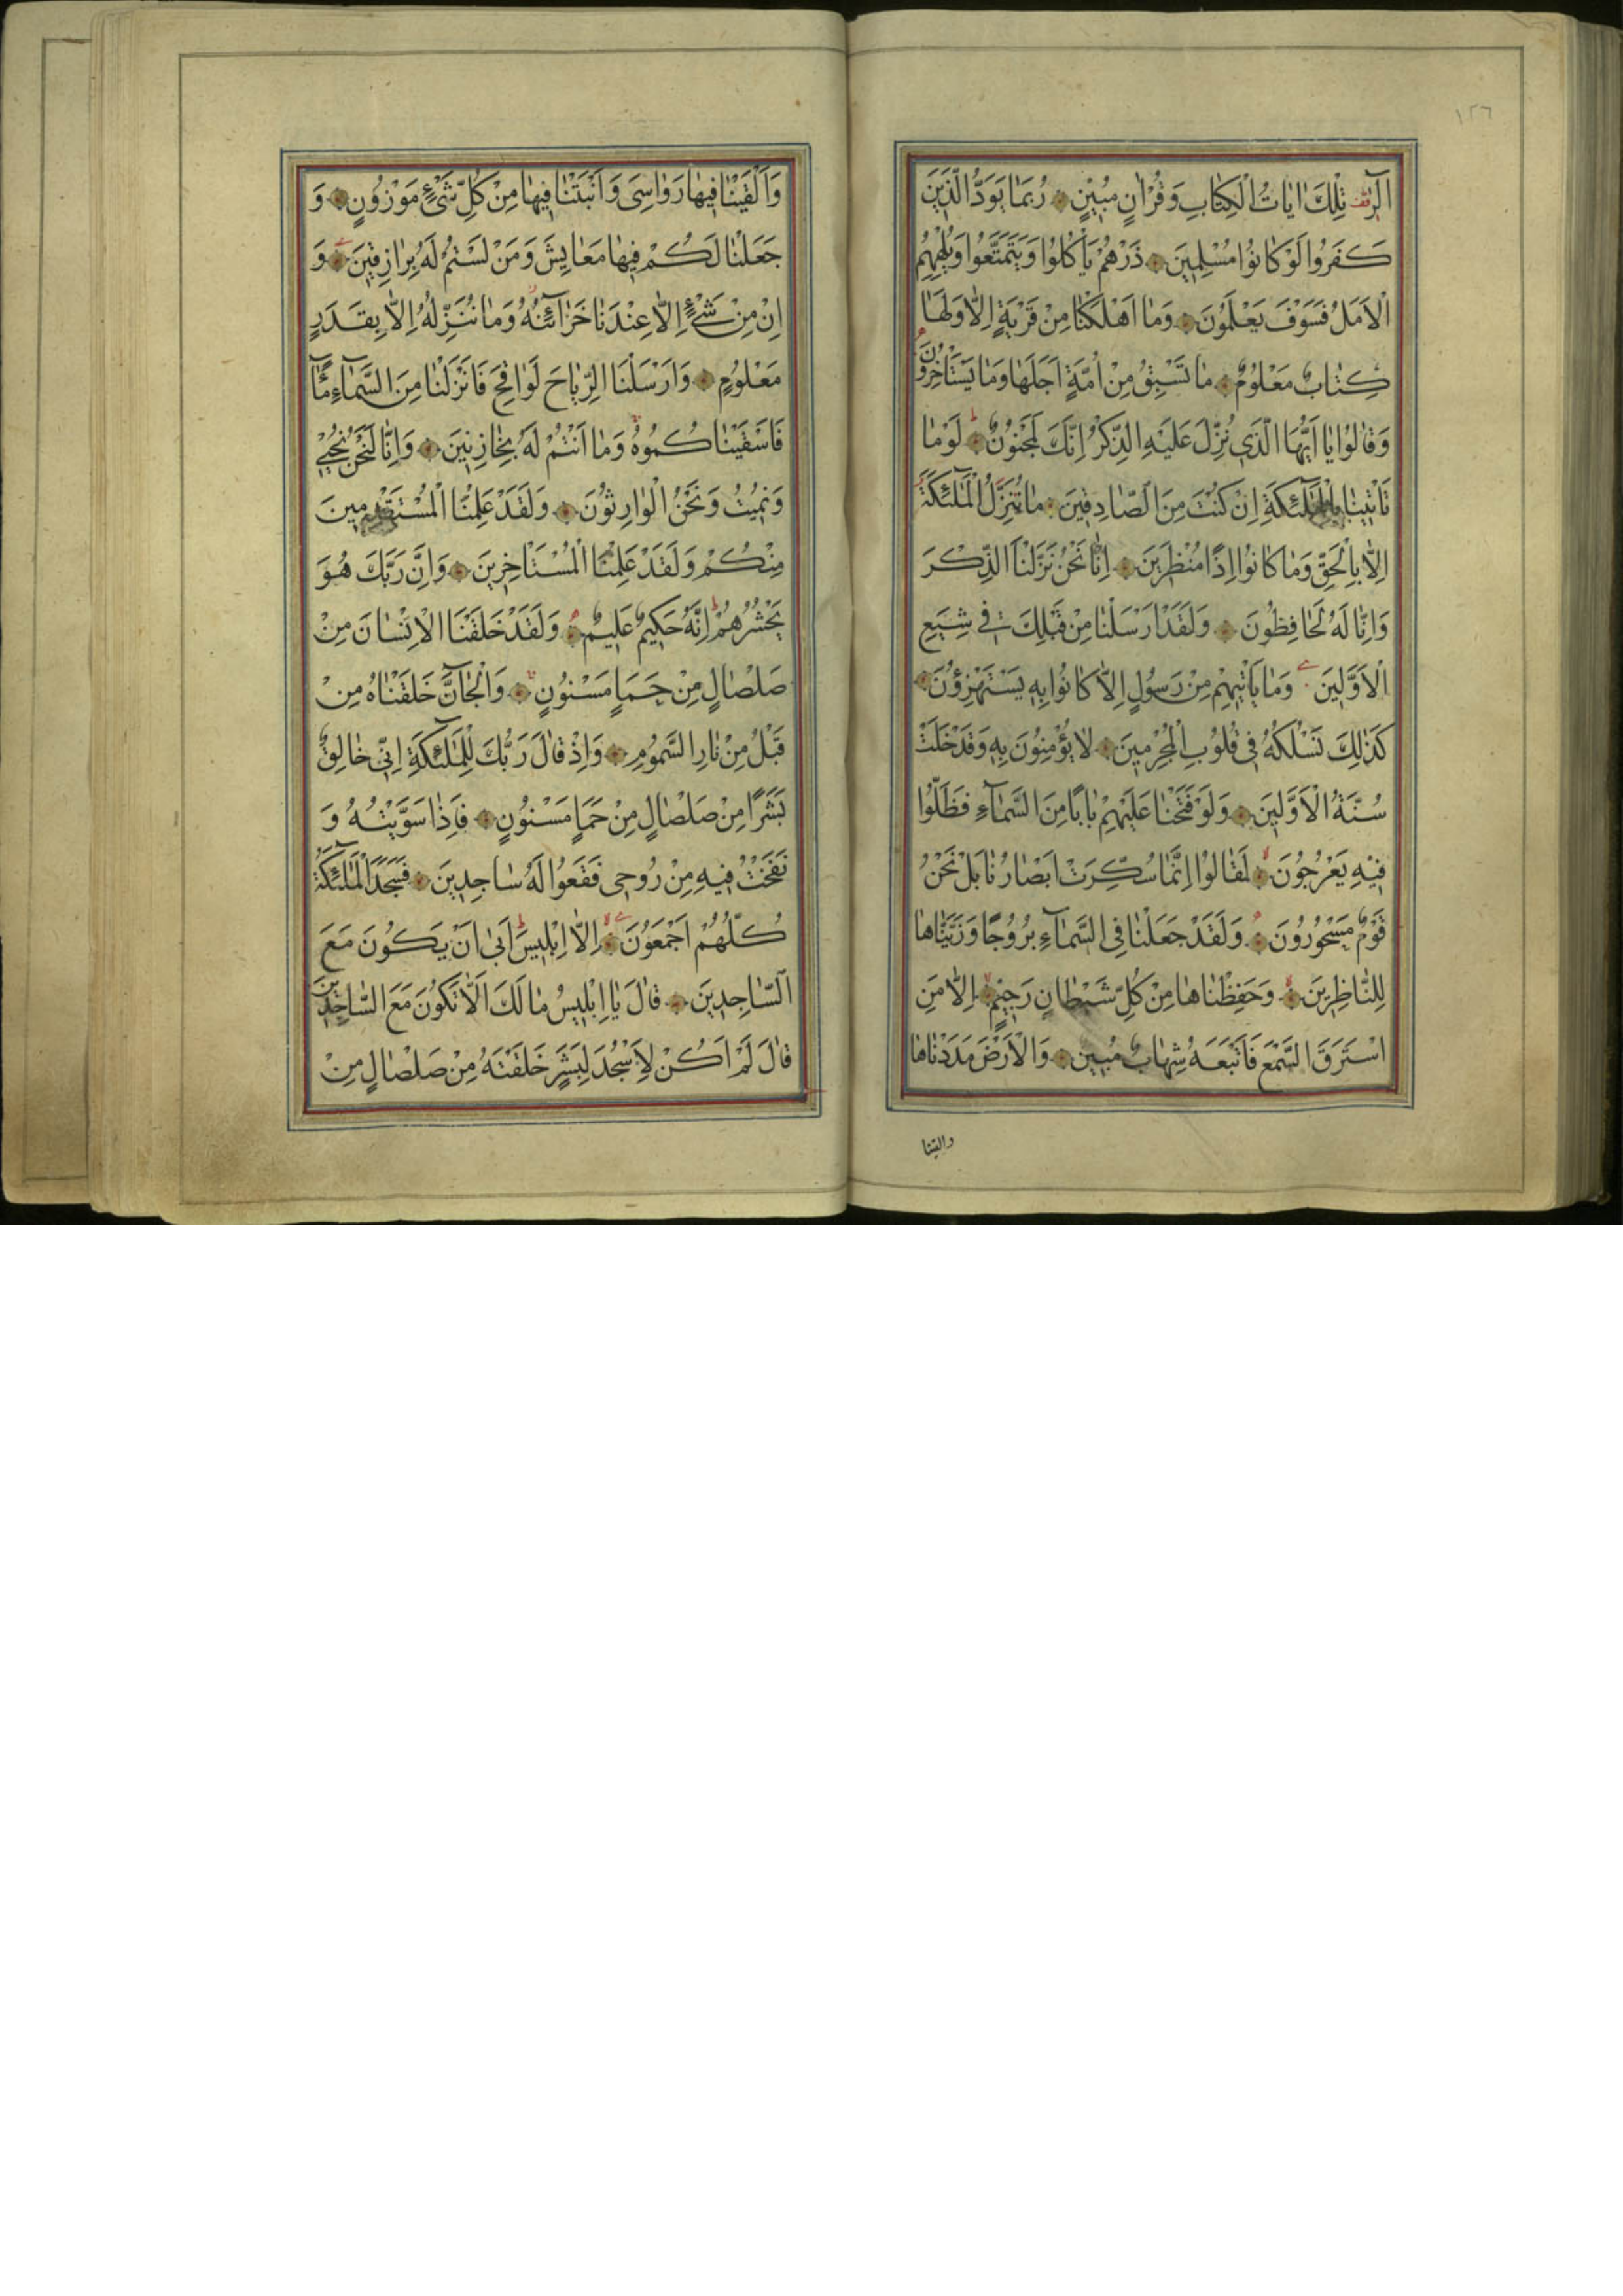 ١٢٦
الٓرٰ تِلْكَ اٰيَاتُ الْكِتَابِ وَقُرْاٰنٍ مُبٖينٍ رُبَمَا يَوَدُّ الَّذٖينَ
كَفَرُوا لَوْ كَانُوا مُسْلِمٖينَ ذَرْهُمْ يَأْكُلُوا وَيَتَمَتَّعُوا وَيُلْهِهِمُ
الْاَمَلُ فَسَوْفَ يَعْلَمُونَ وَمَا اَهْلَكْنَا مِنْ قَرْيَةٍ اِلَّا وَلَهَا
كِتَابٌ مَعْلُومٌ مَا تَسْبِقُ مِنْ اُمَّةٍ اَجَلَهَا وَمَا يَسْتَاْخِرُونَ
وَقَالُوا يَا اَيُّهَا الَّذٖي نُزِّلَ عَلَيْهِ الذِّكْرُ اِنَّكَ لَمَجْنُونٌ لَوْمَا
تَاْتٖينَا بِالْمَلٰٓئِكَةِ اِنْ كُنْتَ مِنَ الصَّادِقٖينَ مَا تُنَزَّلُ الْمَلٰٓئِكَةُ
اِلَّا بِالْحَقِّ وَمَا كَانُوا اِذًا مُنْظَرٖينَ اِنَّا نَحْنُ نَزَّلْنَا الذِّكْرَ
وَاِنَّا لَهُ لَحَافِظُونَ وَلَقَدْ اَرْسَلْنَا مِنْ قَبْلِكَ فٖي شِيَعِ
الْاَوَّلٖينَ وَمَا يَاْتٖيهِمْ مِنْ رَسُولٍ اِلَّا كَانُوا بِهٖ يَسْتَهْزِؤُنَ
كَذٰلِكَ نَسْلُكُهُ فٖي قُلُوبِ الْمُجْرِمٖينَ لَا يُؤْمِنُونَ بِهٖ وَقَدْ خَلَتْ
سُنَّةُ الْاَوَّلٖينَ وَلَوْ فَتَحْنَا عَلَيْهِمْ بَابًا مِنَ السَّمَآءِ فَظَلُّوا
فٖيهِ يَعْرُجُونَ لَقَالُوا اِنَّمَا سُكِّرَتْ اَبْصَارُنَا بَلْ نَحْنُ
قَوْمٌ مَسْحُورُونَ وَلَقَدْ جَعَلْنَا فِي السَّمَآءِ بُرُوجًا وَزَيَّنَّاهَا
لِلنَّاظِرٖينَ وَحَفِظْنَاهَا مِنْ كُلِّ شَيْطَانٍ رَجٖيمٍ اِلَّا مَنِ
اسْتَرَقَ السَّمْعَ فَاَتْبَعَهُ شِهَابٌ مُبٖينٌ وَالْاَرْضَ مَدَدْنَاهَا
والقينا
وَاَلْقَيْنَا فٖيهَا رَوَاسِيَ وَاَنْبَتْنَا فٖيهَا مِنْ كُلِّ شَيْءٍ مَوْزُونٍ وَ
جَعَلْنَا لَكُمْ فٖيهَا مَعَايِشَ وَمَنْ لَسْتُمْ لَهُ بِرَازِقٖينَ وَ
اِنْ مِنْ شَيْءٍ اِلَّا عِنْدَنَا خَزَآئِنُهُ وَمَا نُنَزِّلُهُ اِلَّا بِقَدَرٍ
مَعْلُومٍ وَاَرْسَلْنَا الرِّيَاحَ لَوَاقِحَ فَاَنْزَلْنَا مِنَ السَّمَآءِ مَآءً
فَاَسْقَيْنَاكُمُوهُ وَمَا اَنْتُمْ لَهُ بِخَازِنٖينَ وَاِنَّا لَنَحْنُ نُحْيٖي
وَنُمٖيتُ وَنَحْنُ الْوَارِثُونَ وَلَقَدْ عَلِمْنَا الْمُسْتَقْدِمٖينَ
مِنْكُمْ وَلَقَدْ عَلِمْنَا الْمُسْتَاْخِرٖينَ وَاِنَّ رَبَّكَ هُوَ
يَحْشُرُهُمْ اِنَّهُ حَكٖيمٌ عَلٖيمٌ وَلَقَدْ خَلَقْنَا الْاِنْسَانَ مِنْ
صَلْصَالٍ مِنْ حَمَاٍ مَسْنُونٍ وَالْجَآنَّ خَلَقْنَاهُ مِنْ
قَبْلُ مِنْ نَارِ السَّمُومِ وَاِذْ قَالَ رَبُّكَ لِلْمَلٰٓئِكَةِ اِنّٖي خَالِقٌ
بَشَرًا مِنْ صَلْصَالٍ مِنْ حَمَاٍ مَسْنُونٍ فَاِذَا سَوَّيْتُهُ وَ
نَفَخْتُ فٖيهِ مِنْ رُوحٖي فَقَعُوا لَهُ سَاجِدٖينَ فَسَجَدَ الْمَلٰٓئِكَةُ
كُلُّهُمْ اَجْمَعُونَ اِلَّا اِبْلٖيسَ اَبٰى اَنْ يَكُونَ مَعَ
السَّاجِدٖينَ قَالَ يَا اِبْلٖيسُ مَا لَكَ اَلَّا تَكُونَ مَعَ السَّاجِدٖينَ
قَالَ لَمْ اَكُنْ لِاَسْجُدَ لِبَشَرٍ خَلَقْتَهُ مِنْ صَلْصَالٍ مِنْ